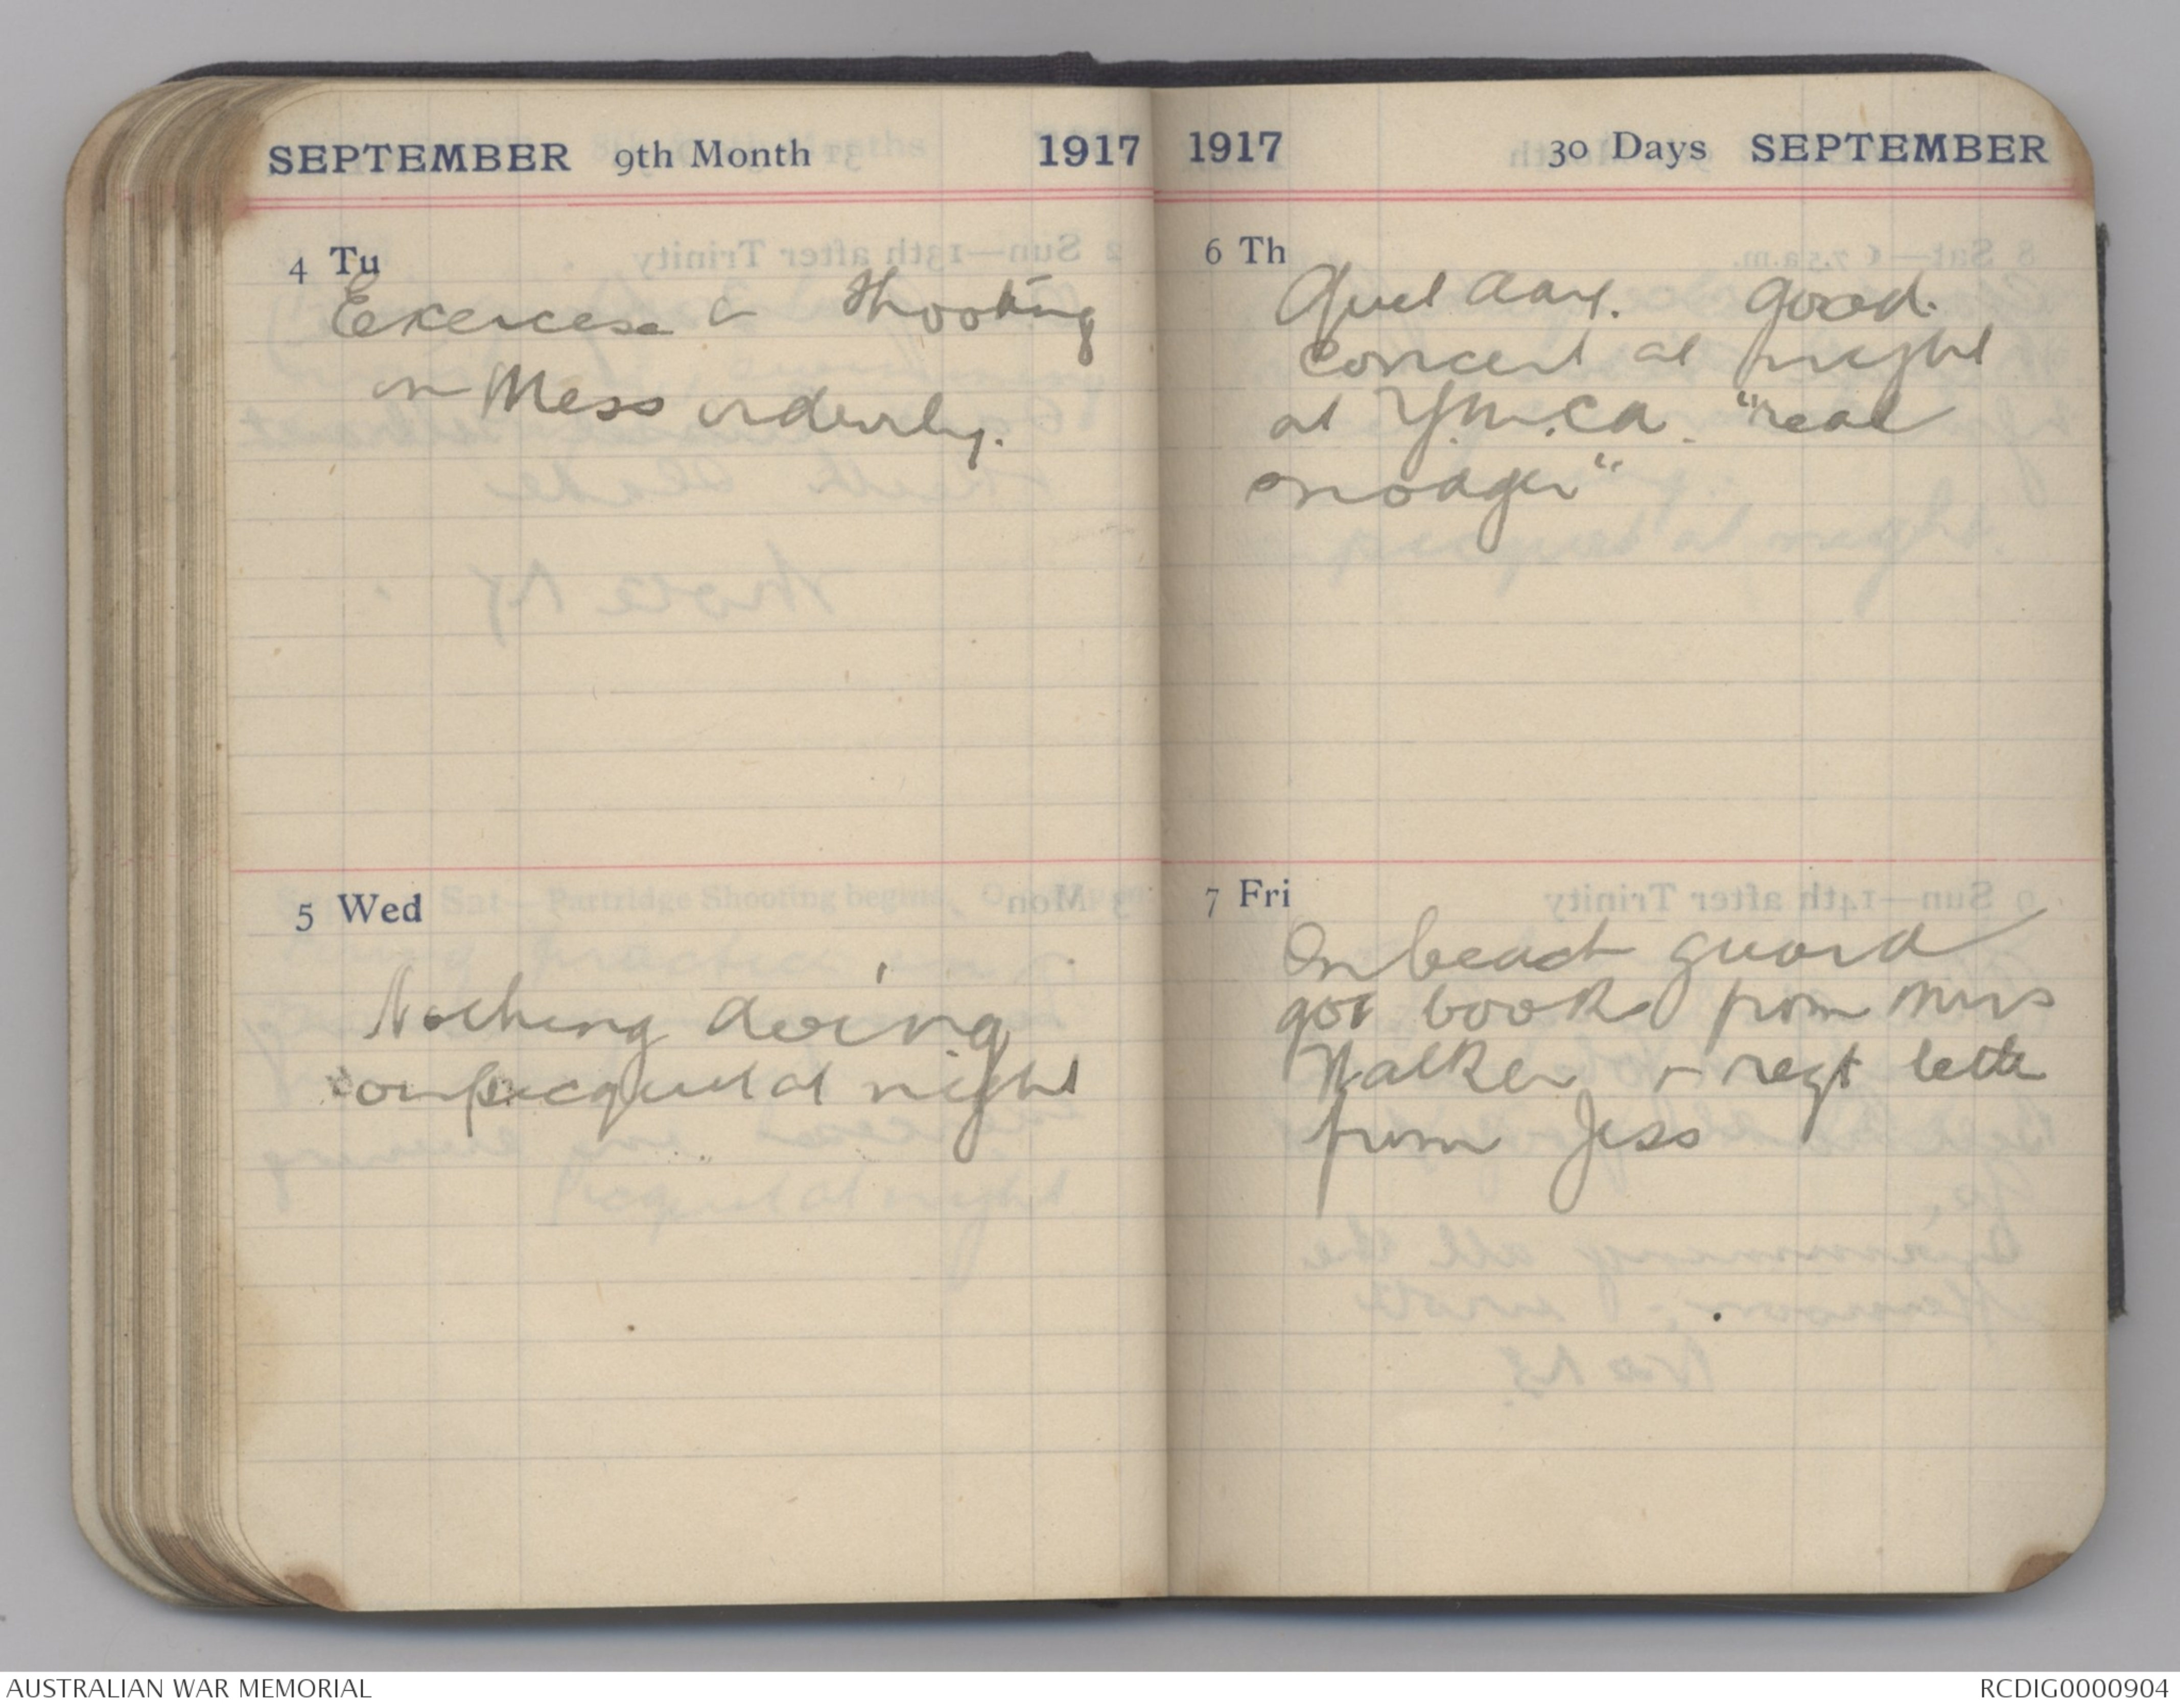 SEPTEMBER 9th Month 1917
4 Tu
Exercese & Shooting
on Mess orderly.
5 Wed
Nothing doing
on picquet at night
1917 30 Days SEPTEMBER
6 Th
Quiet day. Good.
concert at night
at Y.M.C.A. "real
snodger"
7 Fri
On beach guard
got books from Mrs
Walker & regt letter
from Jess
AUSTRALIAN WAR MEMORIAL
RCDIG0000904